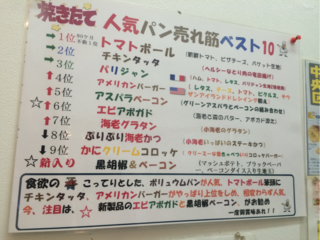 焼きたて 人気パン売れ筋ベスト10
→ 1位 トマトボール
→ 2位 チキンタッタ
→ 3位 パリジャン
↑ 4位 アメリカンバーガー
☆ ↑ 5位 アスパラベーコン
↑ 6位 エピアボガド
↑ 7位 海老グラタン
(小海老のグラタン)
↓ 8位 ぷりぷり海老かつ
(小海老いっぱいのステーキかつ)
↓ 9位 かにクリームコロッケ
☆新入り 黒胡椒&ベーコン
食欲の こってりとした、ボリュウムパンが人気。トマトボール筆頭に
チキンタッタ、アメリカンバーガーがやっぱり上位をしめ、相変わらず人気。
今、注目は、☆ 新製品のエピアボガドと黒胡椒ベーコン、がお勧め
一度御賞味あれ!!